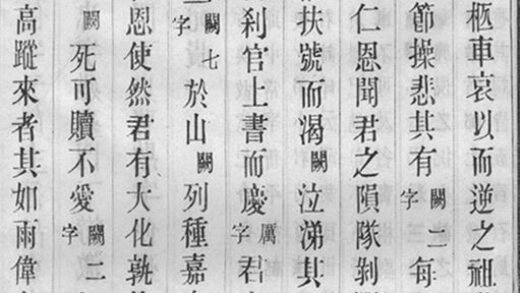 柩車哀以而逆之祖
節操悲其有闕二字每
仁恩聞君之隕隊剝
扶號而渴闕泣涕其
刹官上書而慶厲字君
闕七字於山闕列種嘉
恩使然君有大化孰
闕死可贖不愛闕二字
高蹤來者其如雨偉